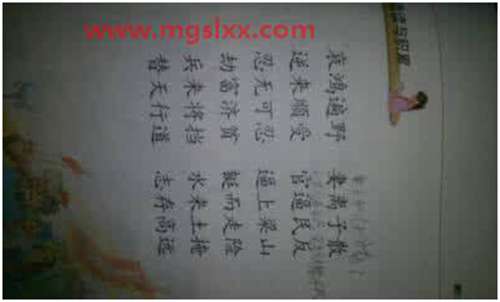 www.mgslxx.com
哀鸿遍野 妻离子散
逆来顺受 官逼民反
忍无可忍 逼上梁山
劫富济贫 铤而走险
兵来将挡 水来土掩
替天行道 志存高远